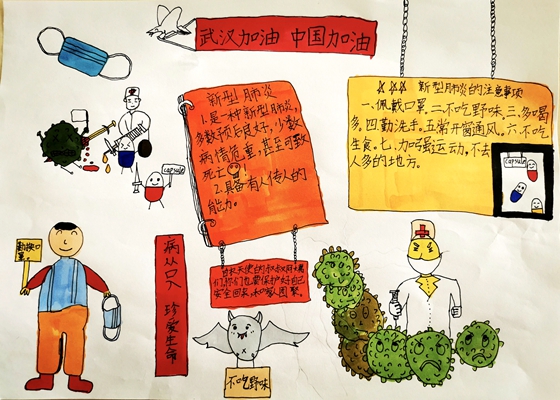 武汉加油 中国加油
新型肺炎
1.是一种新型肺炎,
多数预后良好,少数
病情危重,甚至可致
死亡!
2.具备有人传人的
能力。
新型肺炎的注意事项
一、佩戴口罩。二、不吃野味。三、多喝
多。四、勤洗手。五、常开窗通风。六、不吃
生食。七、加强运动,不去
人多的地方。
capsule
capsule
勤换口
罩。
病从口入 珍爱生命
白衣天使的叔叔阿姨
们,你们也要保护好自己
安全回来,和家团聚。
不吃野味